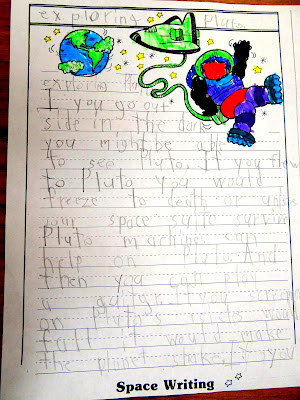 exploring Pluto
exploring Plu
I you go out
side in the dark
you might be able
to see Pluto. If you flew
to Pluto you would
freeze to death or unless
your space suite survive
Pluto machines can
help on Pluto. And
then you can play
a guitar. If you
on Pluto's would
fall it would make
the planet shake.
Space Writing